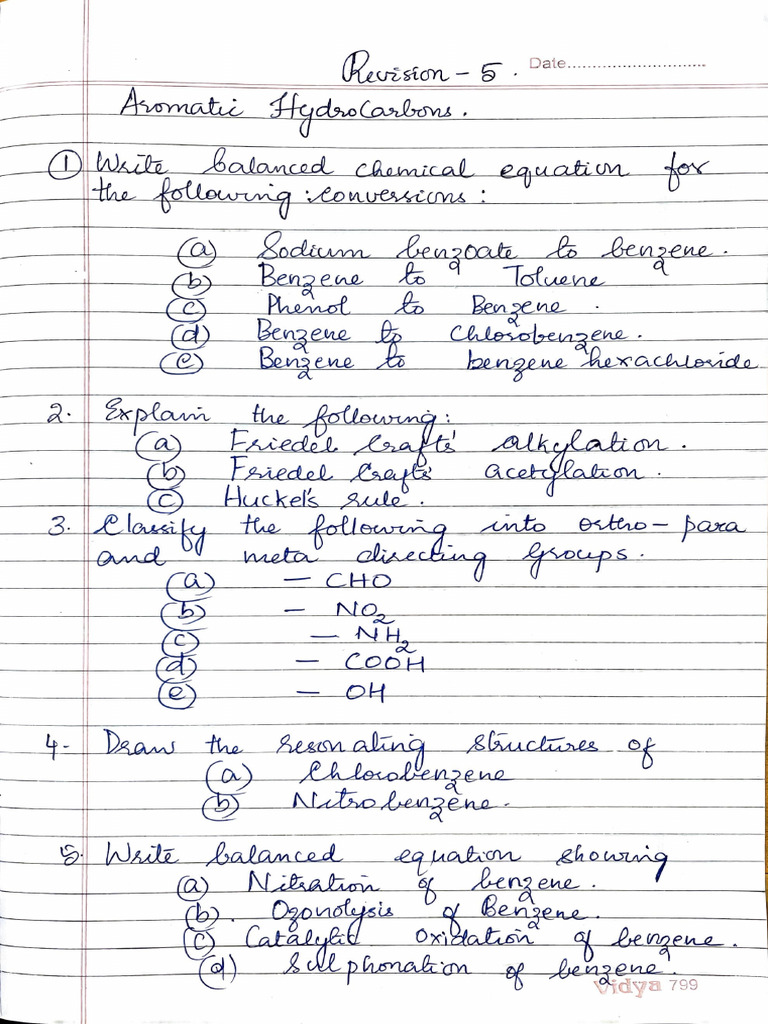 Revision - 5. Date..............................
Aromatic HydroCarbons.
① Write balanced chemical equation for
the following :conversions :
(a) Sodium benzoate to benzene.
(b) Benzene to Toluene
(c) Phenol to Benzene.
(d) Benzene to Chlorobenzene.
(e) Benzene to benzene hexachloride
2. Explain the following:
(a) Friedel Crafts' alkylation.
(b) Friedel Crafts' acetylation.
(c) Huckel's rule.
3. Classify the following into ortho-para
and meta directing groups.
(a) — CHO
(b) — NO₂
(c) — NH₂
(d) — COOH
(e) — OH
4- Draw the resonating structures of
(a) Chlorobenzene
(b) Nitrobenzene.
5. Write balanced equation showing
(a) Nitration of benzene.
(b). Ozonolysis of Benzene.
(c) Catalytic oxidation of benzene.
(d) Sulphonation of benzene.
Vidya 799